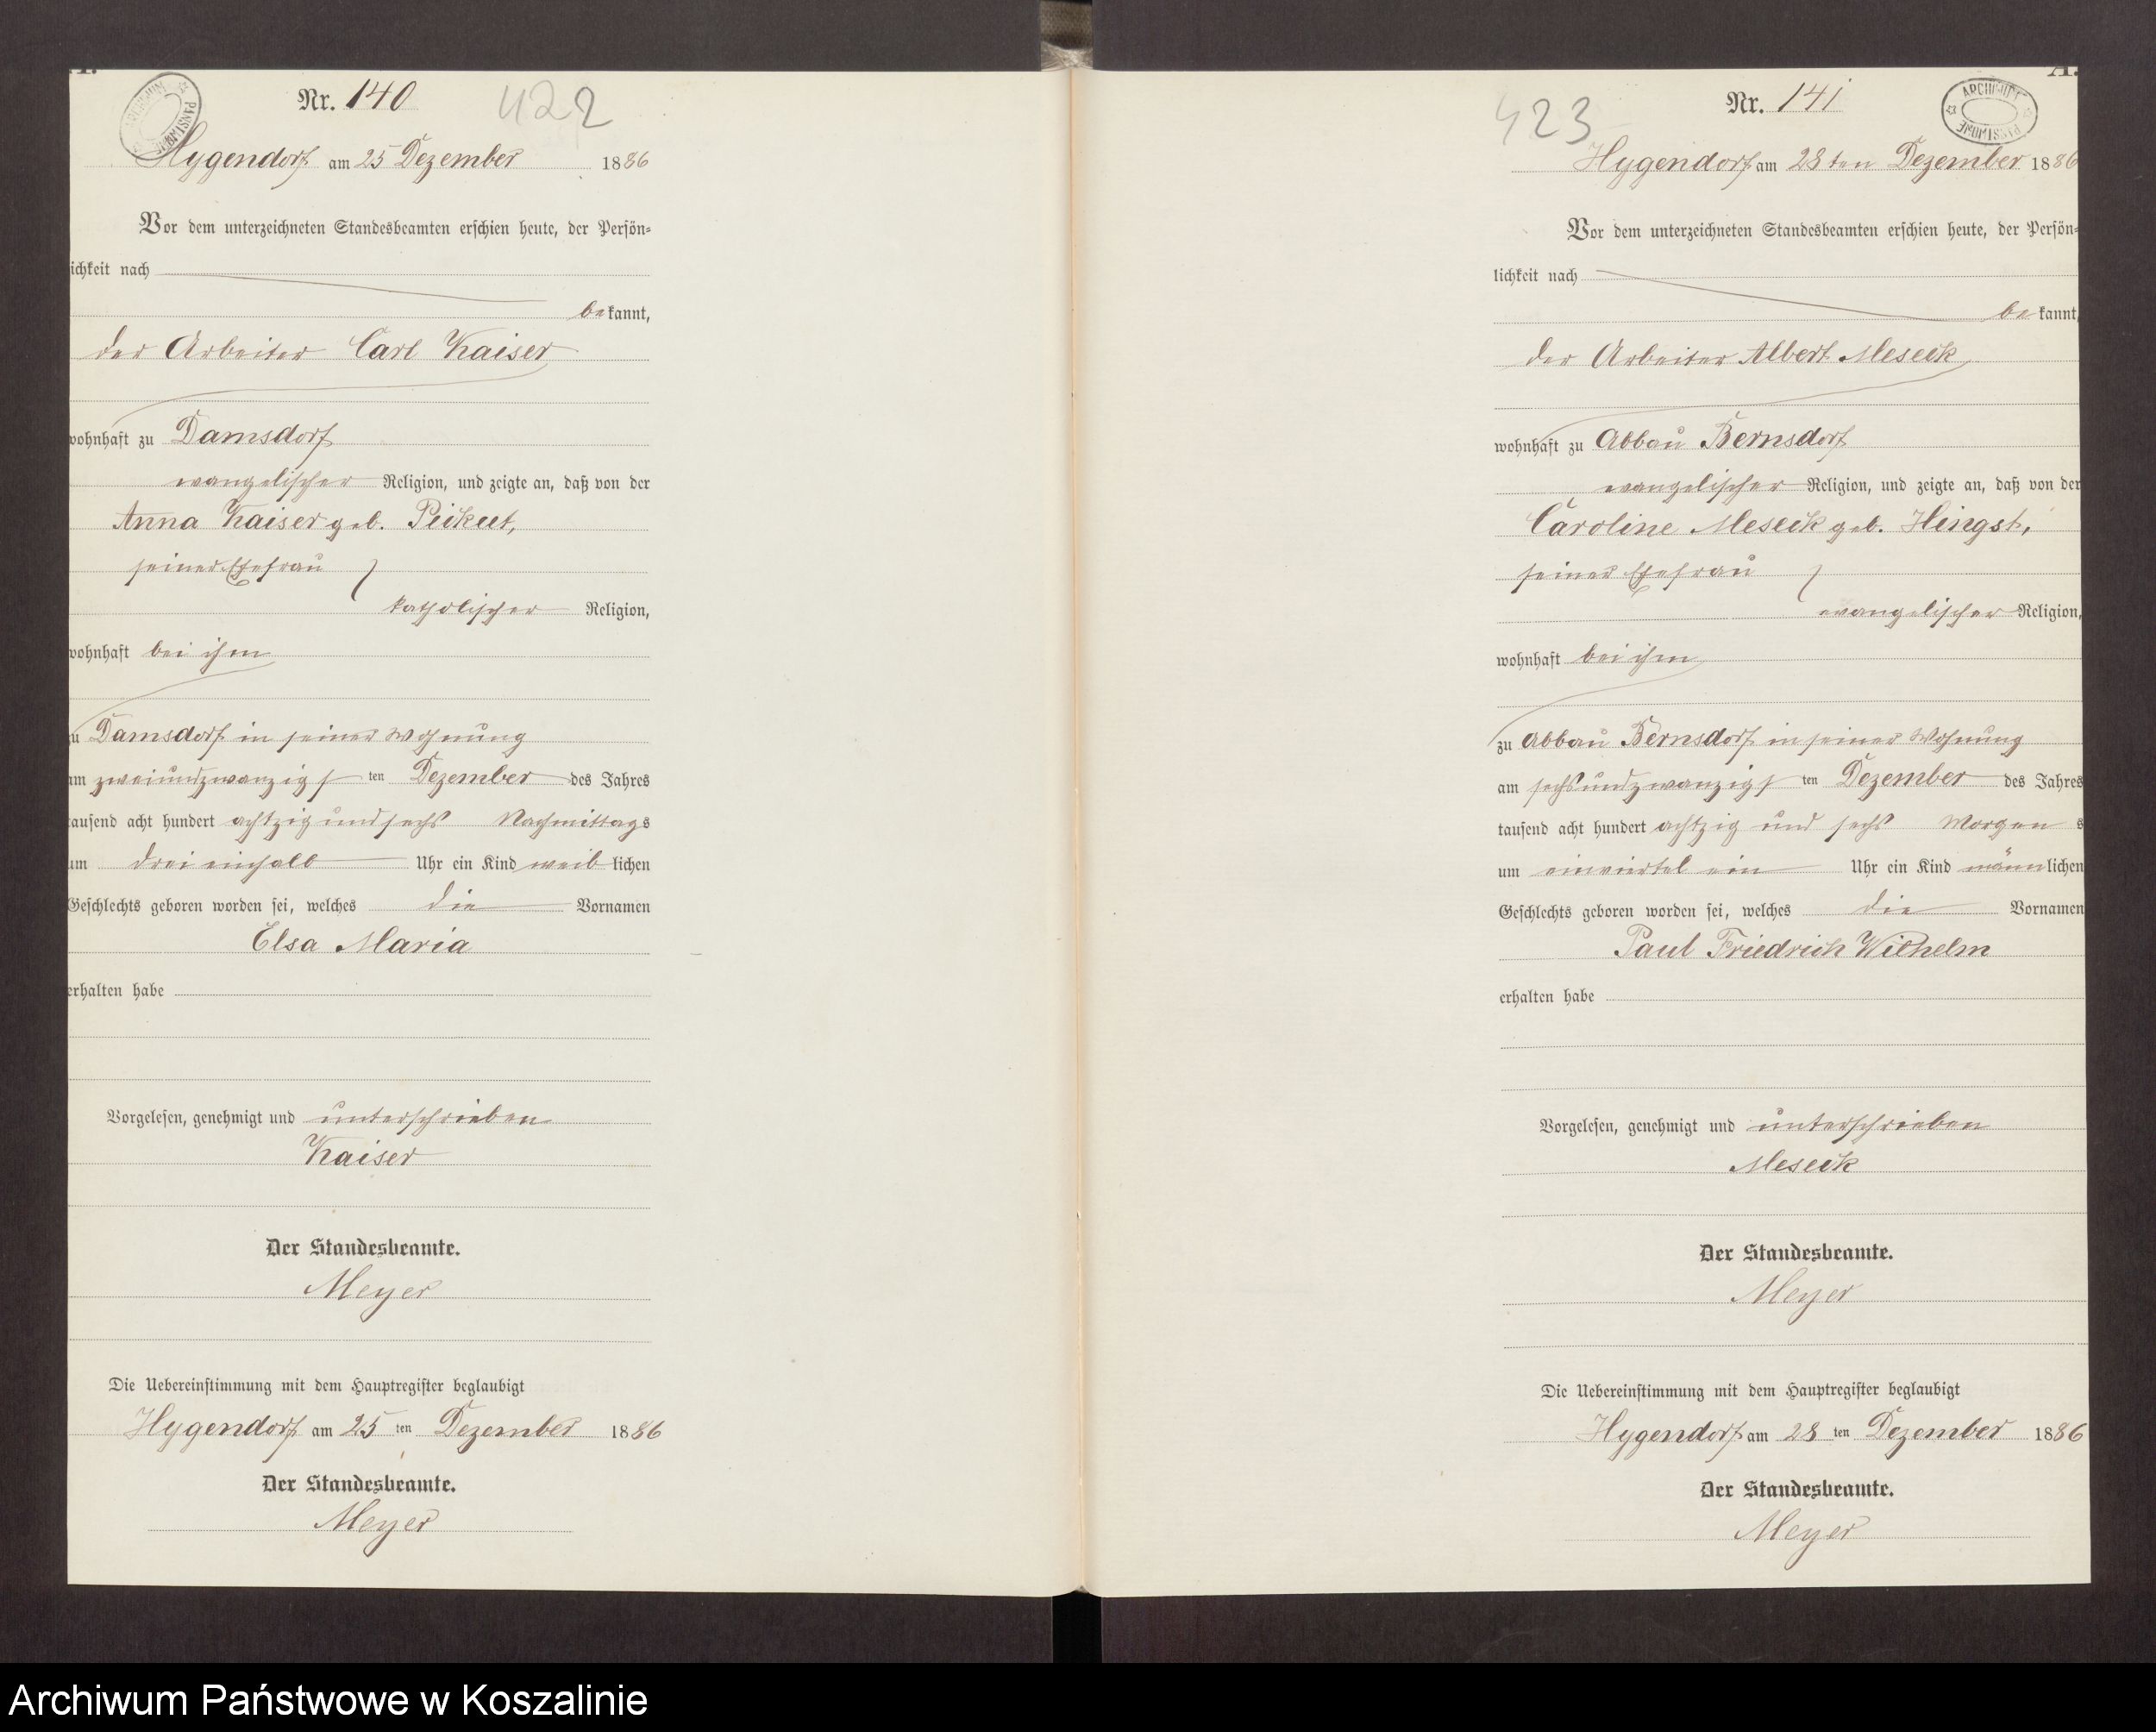 A.
ARCHIWUM PAŃSTWOWE
Nr. 140
422
Hygendorf am 25 Dezember 1886
Vor dem unterzeichneten Standesbeamten erschien heute, der Persön-
lichkeit nach
bekannt,
der Arbeiter Carl Kaiser
wohnhaft zu Damsdorf
evangelischer Religion, und zeigte an, daß von der
Anna Kaiser geb. Peikut,
seiner Ehefrau
katholischer Religion,
wohnhaft bei ihm
zu Damsdorf in seiner Wohnung
am zweiundzwanzigsten Dezember des Jahres
tausend acht hundert achtzig und sechs Nachmittags
um drei einhalb Uhr ein Kind weiblichen
Geschlechts geboren worden sei, welches die Vornamen
Elsa Maria
erhalten habe
Vorgelesen, genehmigt und unterschrieben
Kaiser
Der Standesbeamte.
Meyer
Die Uebereinstimmung mit dem Hauptregister beglaubigt
Hygendorf am 25 ten Dezember 1886
Der Standesbeamte.
Meyer
A.
ARCHIWUM PAŃSTWOWE
423
Nr. 141
Hygendorf am 28 ten Dezember 1886
Vor dem unterzeichneten Standesbeamten erschien heute, der Persön-
lichkeit nach
bekannt,
der Arbeiter Albert Meseck
wohnhaft zu Abbau Bernsdorf
evangelischer Religion, und zeigte an, daß von der
Caroline Meseck geb. Hingst,
seiner Ehefrau
evangelischer Religion,
wohnhaft bei ihm
zu Abbau Bernsdorf in seiner Wohnung
am sechsundzwanzigsten Dezember des Jahres
tausend acht hundert achtzig und sechs Morgens
um einviertel ein Uhr ein Kind männlichen
Geschlechts geboren worden sei, welches die Vornamen
Paul Friedrich Wilhelm
erhalten habe
Vorgelesen, genehmigt und unterschrieben
Meseck
Der Standesbeamte.
Meyer
Die Uebereinstimmung mit dem Hauptregister beglaubigt
Hygendorf am 28 ten Dezember 1886
Der Standesbeamte.
Meyer
Archiwum Państwowe w Koszalinie